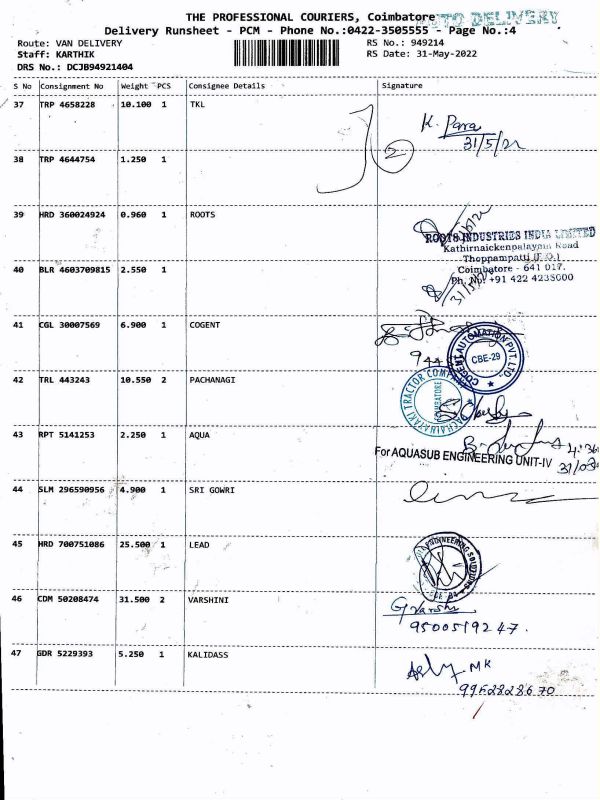 THE PROFESSIONAL COURIERS, Coimbatore
AUTO DELIVERY
Delivery Runsheet - PCM - Phone No.:0422-3505555 - Page No.:4
Route: VAN DELIVERY RS No.: 949214
Staff: KARTHIK RS Date: 31-May-2022
DRS No.: DCJB94921404
S No Consignment No Weight PCS Consignee Details Signature
37 TRP 4658228 10.100 1 TKL
K. Para
31/5/22
2
38 TRP 4644754 1.250 1
39 HRD 360024924 0.960 1 ROOTS
ROOTS INDUSTRIES INDIA LIMITED
Kathirnaickenpalayam Road
Thoppampatti (P.O.)
40 BLR 4603709815 2.550 1
Coimbatore - 641 017.
Ph. No: +91 422 4235000
41 CGL 30007569 6.900 1 COGENT
COGENT AUTOMATION PVT. LTD
CBE-29
42 TRL 443243 10.550 2 PACHANAGI
TRACTOR COMPANY
COIMBATORE
43 RPT 5141253 2.250 1 AQUA
For AQUASUB ENGINEERING UNIT-IV
44 SLM 296590956 4.900 1 SRI GOWRI
45 HRD 700751086 25.500 1 LEAD
ENGINEERING SOLUTIONS
46 CDM 50208474 31.500 2 VARSHINI
G Varshi
9500519247.
47 GDR 5229393 5.250 1 KALIDASS
MK
9952828670